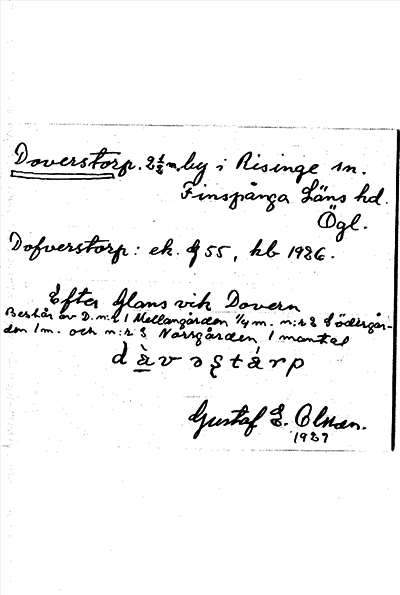 Doverstorp. 2½ m. by i Risinge sn.
Finspånga Läns hd.
Ögl.
Dofverstorp: ek. 55, kb 1926.
Efter Glans vik Dovern
Består av D. n:r 1 Mellangården ¼ m. n:r 2 Södergår-
den 1 m. och n:r 3 Norrgården 1 mantal
Gustaf E. Olsson.
1927